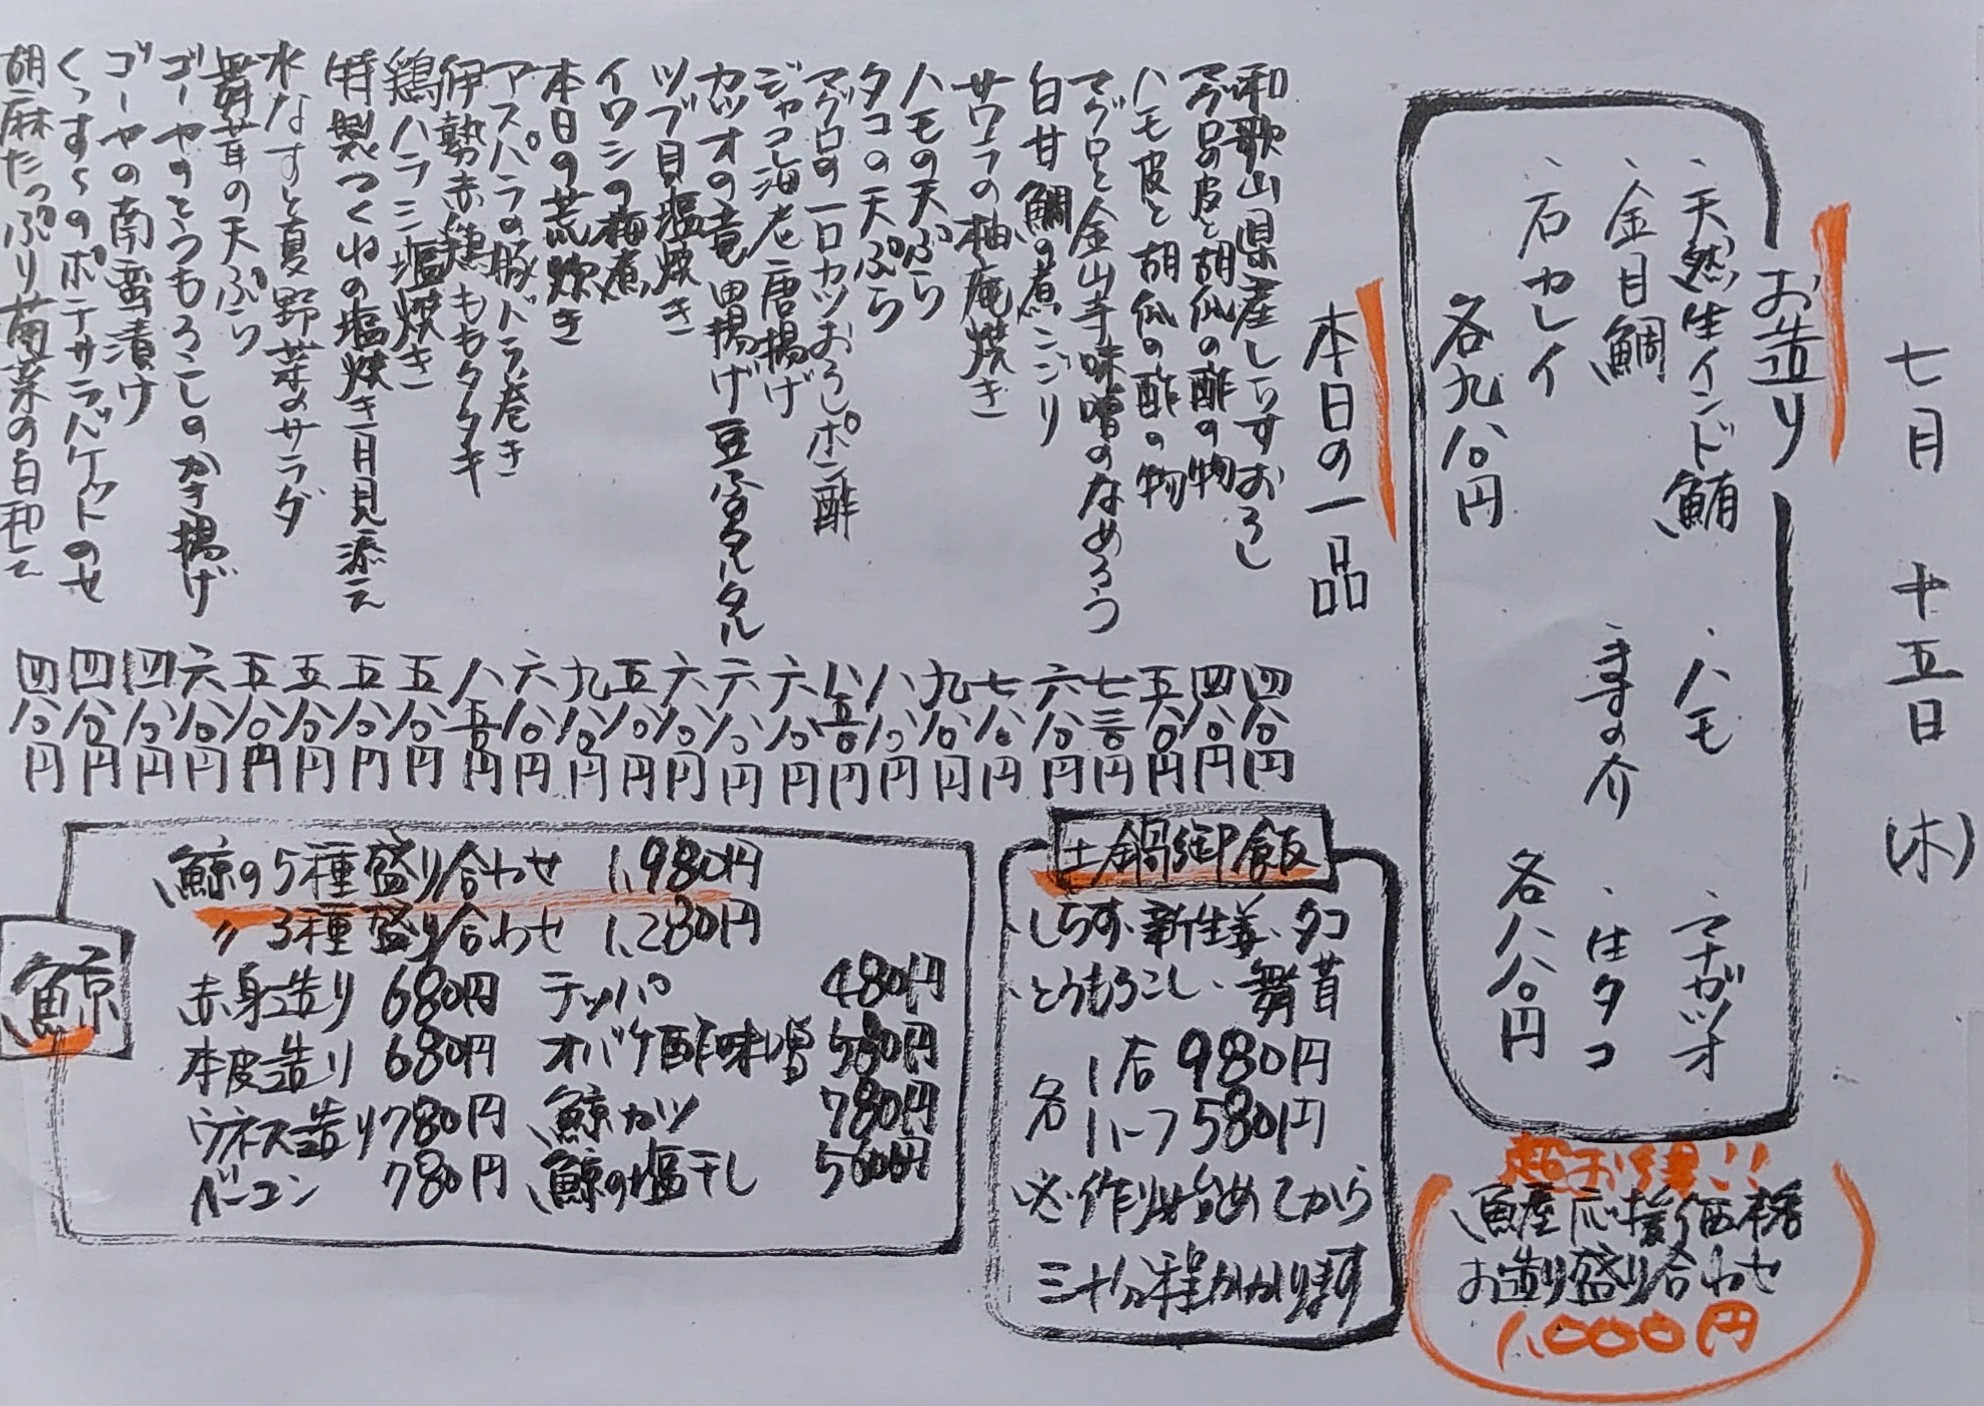 七月十五日（水）
お造り
、天然生インド鮪
、金目鯛
、石カレイ
各九八〇円
、ハモ
、キスの介
、マナガツオ
、生タコ
各八八〇円
超お得!!
魚屋応援価格
お造り盛り合わせ
1,000円
本日の一品
和歌山県産しらすおろし 四八〇円
マグロの皮と胡瓜の酢の物 四八〇円
ハモ皮と胡瓜の酢の物 五八〇円
マグロと金山寺味噌のなめろう 七三〇円
白甘鯛の煮こごり 六八〇円
サワラの柚庵焼き 七八〇円
ハモの天ぷら 九八〇円
タコの天ぷら 八八〇円
マグロの一口カツおろしポン酢 八五〇円
ジャコ海老唐揚げ 六八〇円
カツオの竜田揚げ豆腐タルタル 六八〇円
ツブ貝塩焼き 六八〇円
イワシの梅煮 五八〇円
本日の荒炊き 九八〇円
アスパラの豚バラ巻き 六八〇円
伊勢赤鶏ももタタキ 八五〇円
鶏ハラミ塩焼き 五八〇円
特製つくねの塩焼き月見添え 五八〇円
水なすと夏野菜のサラダ 五八〇円
舞茸の天ぷら 五八〇円
ゴーヤのとうもろこしのかき揚げ 六八〇円
ゴーヤの南蛮漬け 四八〇円
くっすんのポテサラバケットのせ 四八〇円
胡麻たっぷり菊菜の白和え 四八〇円
土鍋御飯
、しらす、新生姜、タコ
、とうもろこし、舞茸
各 1合 980円
ハーフ 580円
必作り始めてから
三十分程かかります
鯨
鯨の5種盛り合わせ 1,980円
〃3種盛り合わせ 1,280円
赤身造り 680円 テッパ 480円
本皮造り 680円 オバケ酢味噌 580円
ウネス造り 780円 鯨カツ 780円
ベーコン 780円 鯨の塩干し 500円